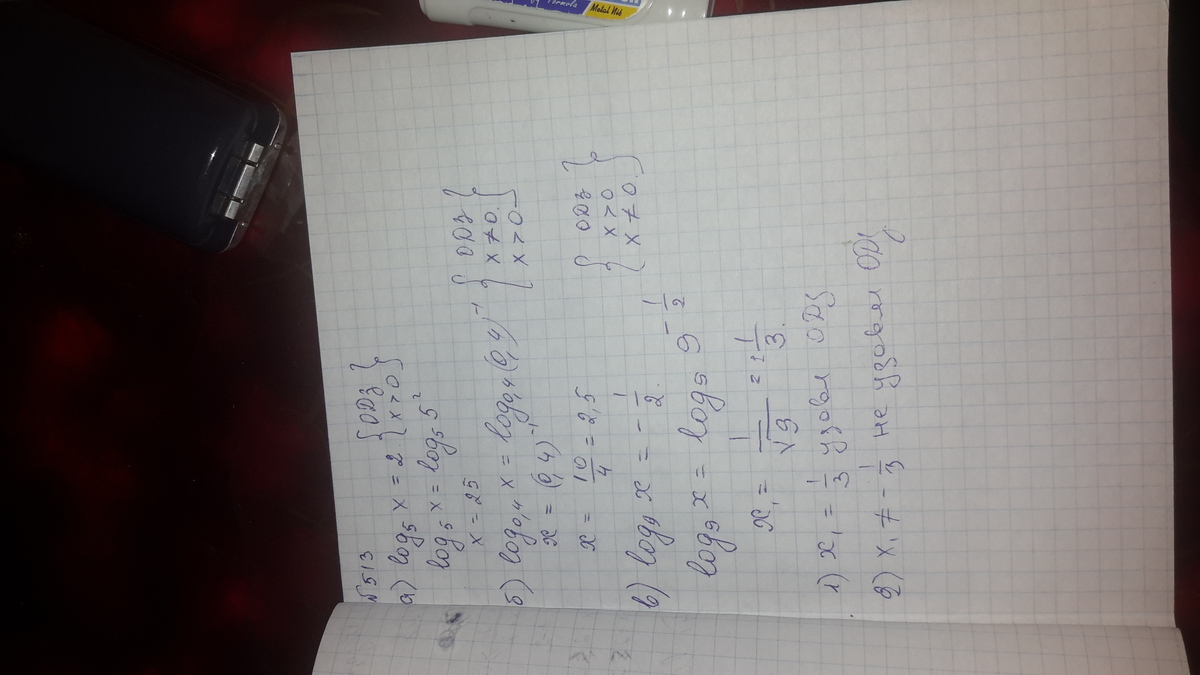 №513
а) log₅ x = 2 { ОДЗ x > 0 }
log₅ x = log₅ 5²
x = 25
б) log₀,₄ x = log₀,₄ (0,4)⁻¹ { ОДЗ x ≠ 0. x > 0 }
x = (0,4)⁻¹
x = 10/4 = 2,5
в) log₉ x = - 1/2. { ОДЗ x > 0 x ≠ 0. }
log₉ x = log₉ 9^(-1/2)
x₁ = 1/√9 = ± 1/3.
1) x₁ = 1/3 удовл ОДЗ
2) x₁ ≠ - 1/3 не удовл ОДЗ.
Metal Nib